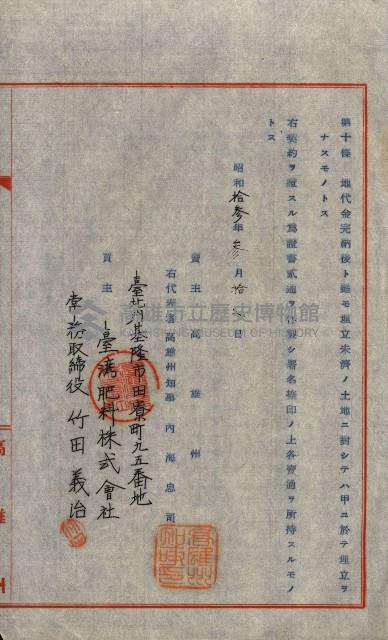 第十條　地代金完納後ト雖モ埋立未濟ノ土地ニ對シテハ甲ニ於テ埋立ヲ
ナスモノトス
右契約ヲ證スル爲證書貳通ヲ作製シ署名捺印ノ上各壹通ヲ所持スルモノ
トス
昭和拾參年參月拾 日
賣主　高雄州
右代表者高雄州知事　內海忠司
臺北州基隆市田寮町九五番地
買主　臺灣肥料株式會社
常務取締役　竹田義治
高雄州
高雄市立歷史博物館
KAOHSIUNG MUSEUM OF HISTORY